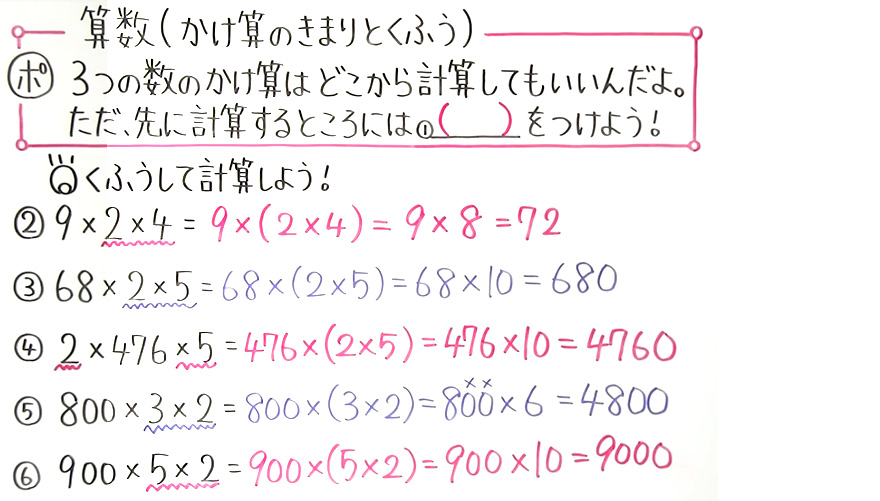 算数(かけ算のきまりとくふう)
ポ 3つの数のかけ算は どこから計算してもいいんだよ。
ただ、先に計算するところには①( )をつけよう!
くふうして計算しよう!
② 9×2×4 = 9×(2×4) = 9×8 = 72
③ 68×2×5 = 68×(2×5) = 68×10 = 680
④ 2×476×5 = 476×(2×5) = 476×10 = 4760
⑤ 800×3×2 = 800×(3×2) = 800×6 = 4800
⑥ 900×5×2 = 900×(5×2) = 900×10 = 9000